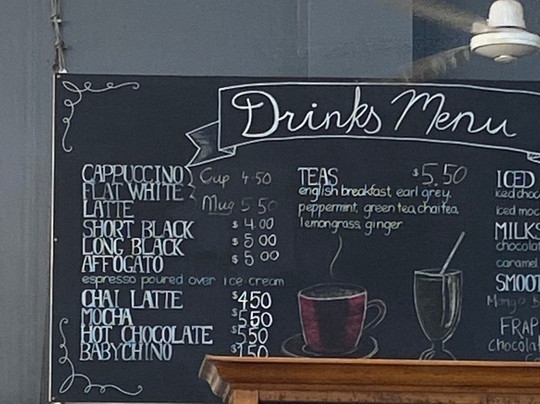 Drinks Menu
CAPPUCCINO Cup 4.50
FLAT WHITE
LATTE Mug 5.50
SHORT BLACK $4.00
LONG BLACK $5.00
AFFOGATO $5.00
espresso poured over ice cream
CHAI LATTE $4.50
MOCHA $5.50
HOT CHOCOLATE $5.50
BABYCHINO $1.50
TEAS $5.50
english breakfast, earl grey,
peppermint, green tea, chai tea,
lemongrass, ginger
ICED
iced choc
iced moc
MILKS
chocolat
caramel
SMOOT
Mango, b
FRAP
chocolat